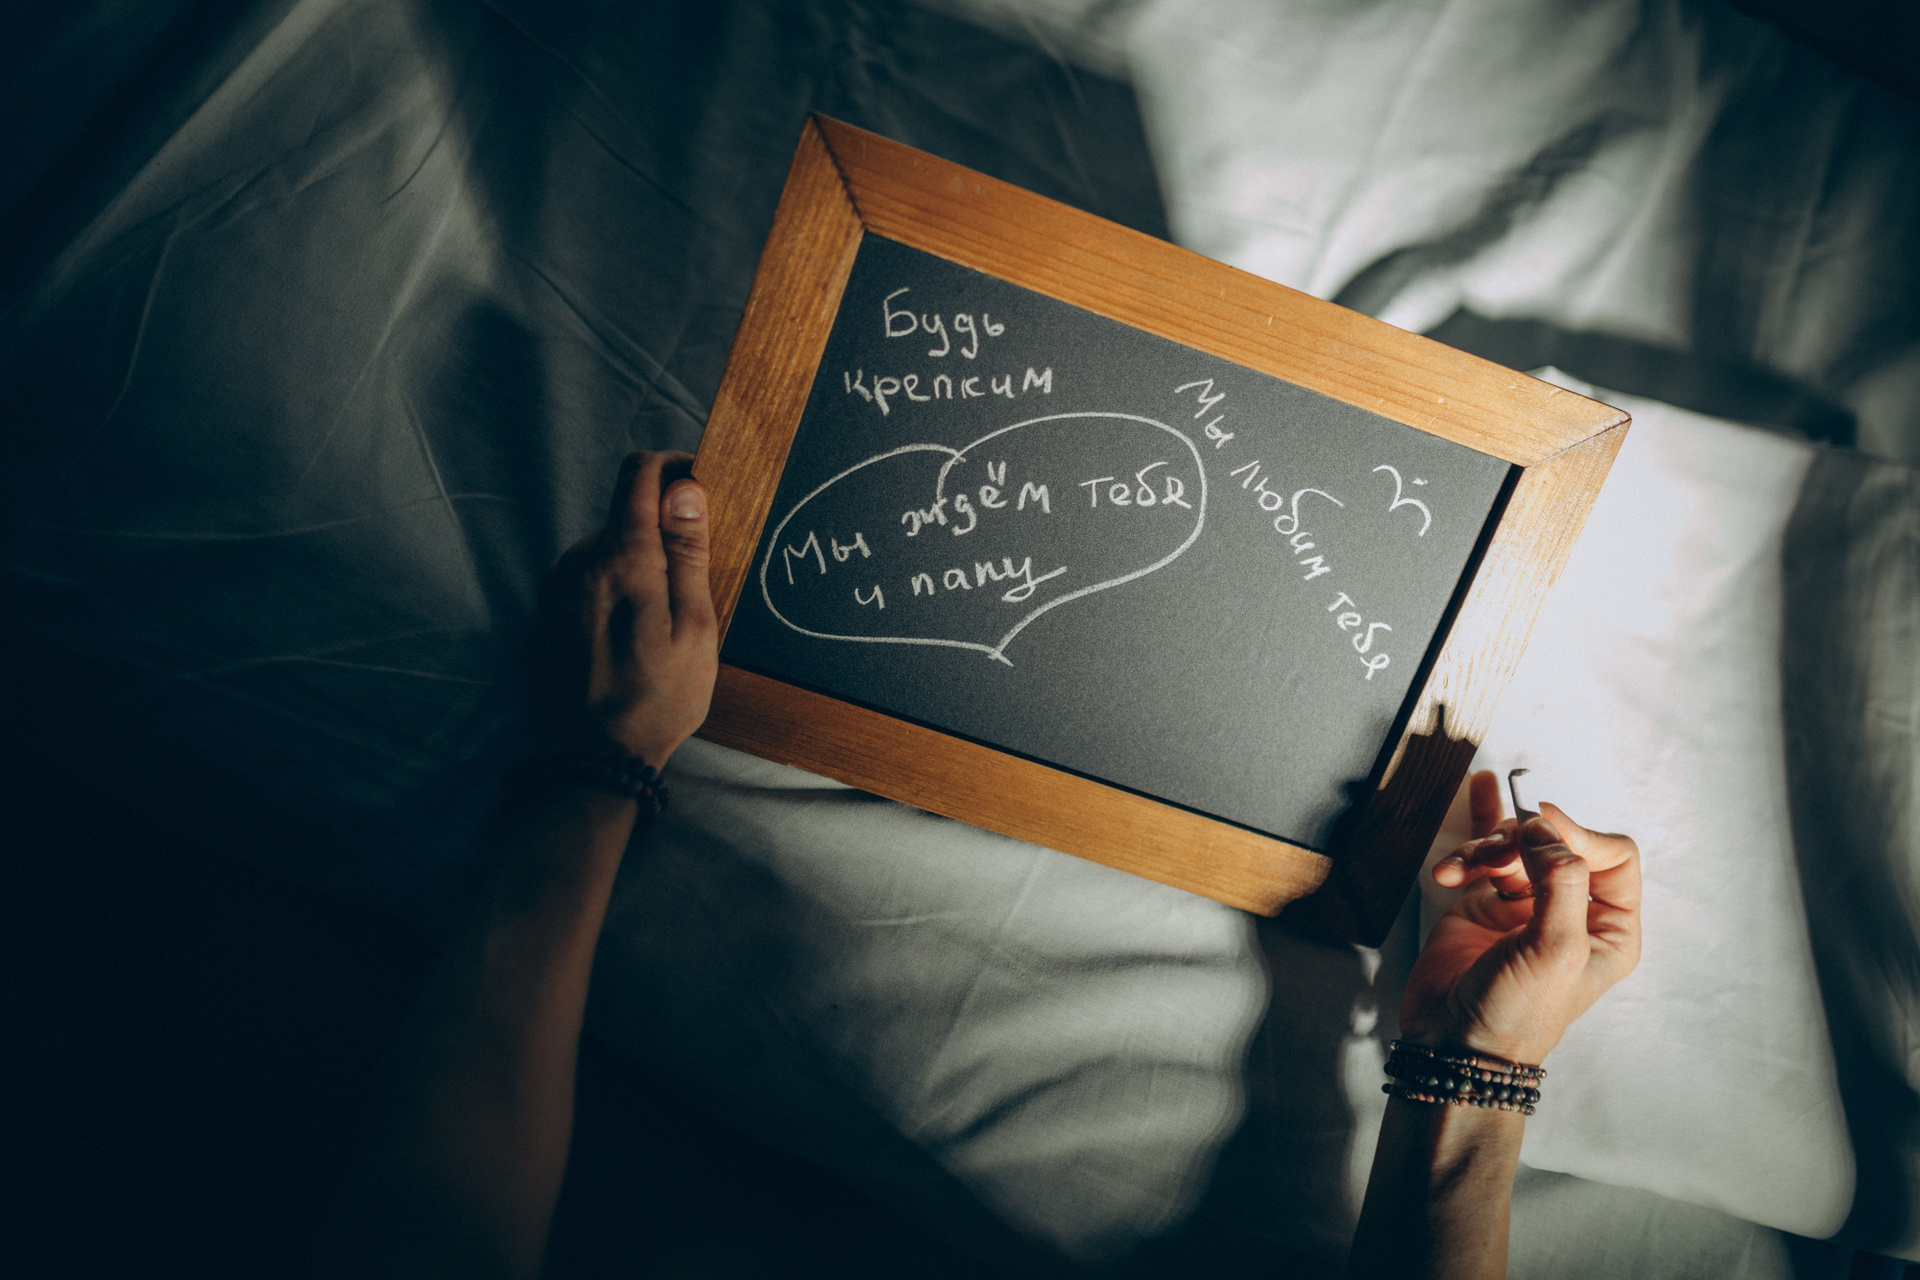 Будь
крепким
Мы ждём тебя
и папу
Мы любим тебя